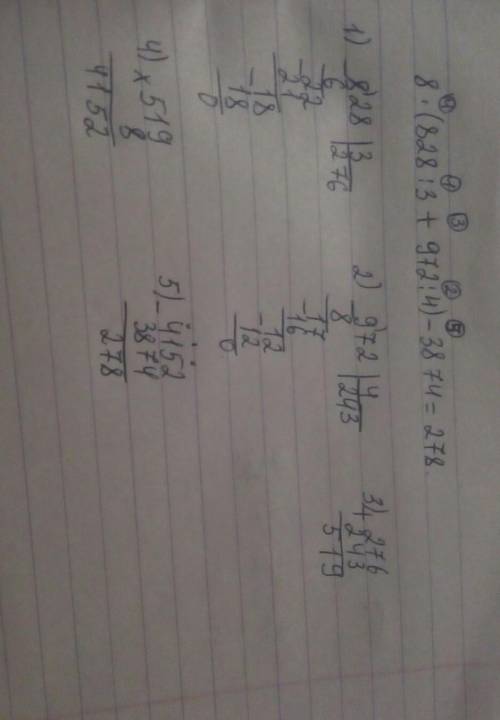 ④ ① ③ ② ⑤
8·(828:3 + 972:4) - 3874 = 278.
1) -828 | 3
6 | 276
-22
21
-18
18
0
2) -972 | 4
8 | 243
-17
16
-12
12
0
3) +276
243
519
4) x 519
8
4152
5) -4152
3874
278